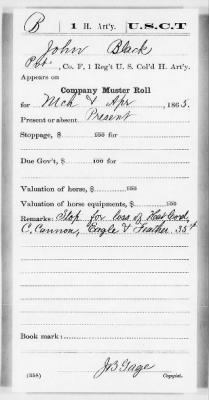 B | 1 H. Art'y. | U.S.C.T
John Black
Pvt., Co. F, 1 Reg't U. S. Col'd H. Art'y.
Appears on
Company Muster Roll
for Mch & Apr, 1865.
Present or absent Present
Stoppage, $ 100 for
Due Gov't, $ 100 for
Valuation of horse, $ 100
Valuation of horse equipments, $ 100
Remarks: Stop for loss of Hat, Cord,
C. Cannon, Eagle & Feather 35
Book mark:
(358) Copyist.